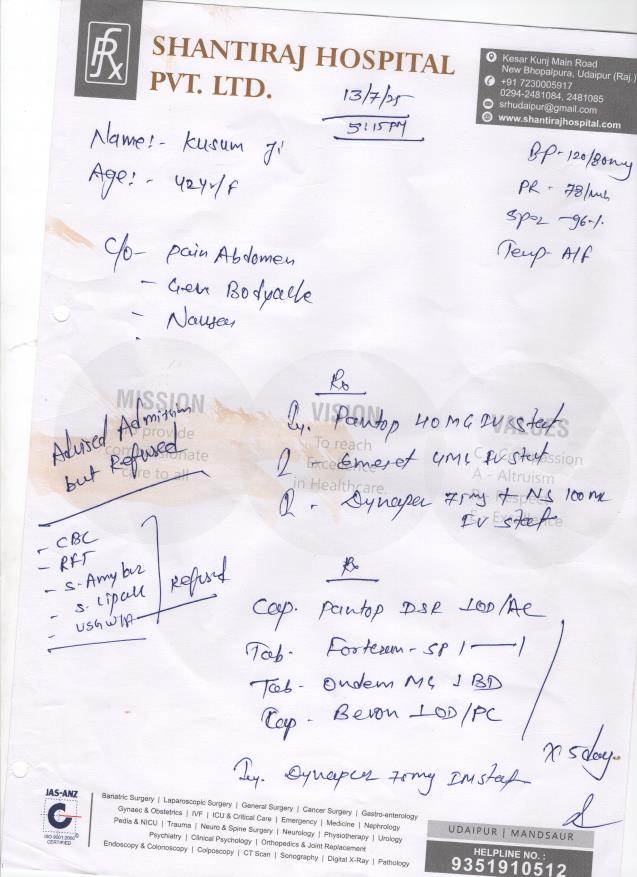 SHANTIRAJ HOSPITAL
PVT. LTD.
Kesar Kunj Main Road
New Bhopalpura, Udaipur (Raj.)
+91 7230005917
0294-2481084, 2481085
srhudaipur@gmail.com
www.shantirajhospital.com
13/7/25
5:15 PM
Name:- Kusum Ji
Age:- 42yr/F
BP- 120/80
PR - 78/
SpO2 - 96%
Temp- A/F
C/o- Pain Abdomen
- Gen Bodyache
- Nausea
MISSION
To provide
compassionate
care to all
VISION
To reach
Excellence
in Healthcare.
VALUES
C - Compassion
A - Altruism
R - Respect
E - Excellence
Advised Admission
but Refused
- CBC
- RFT
- S. Amylase
- S. Lipase
- USG W/A
Refused
Rx
Inj. Pantop 40 MG IV stat
- Emeset 4MG IV stat
- Dynaper 75mg + NS 100 ML
IV stat
Rx
Cap. Pantop DSR 1OD/AC
Tab. - SP 1—1
Tab- Ondem M4 1 BD
Cap- Bevon 1OD/PC
X 5 day.
Inj. Dynaper 75mg IM stat
JAS-ANZ
ISO 9001:2000
CERTIFIED
Bariatric Surgery | Laparoscopic Surgery | General Surgery | Cancer Surgery | Gastro-enterology
Gynaec & Obstetrics | IVF | ICU & Critical Care | Emergency | Medicine | Nephrology
Pedia & NICU | Trauma | Neuro & Spine Surgery | Neurology | Physiotherapy | Urology
Psychiatry | Clinical Psychology | Orthopedics & Joint Replacement
Endoscopy & Colonoscopy | Colposcopy | CT Scan | Sonography | Digital X-Ray | Pathology
UDAIPUR | MANDSAUR
HELPLINE NO. :
9351910512